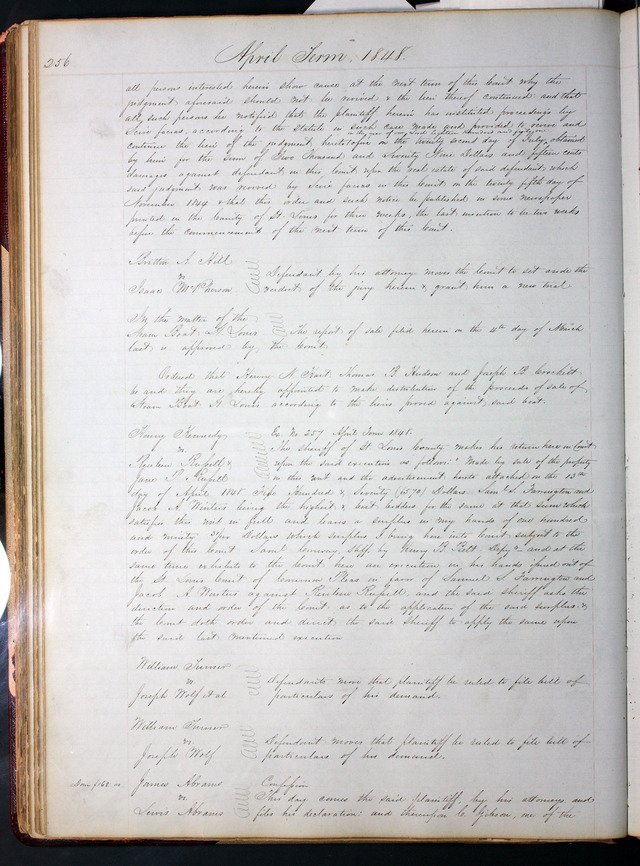 256
April Term 1848.
all persons interested herein show cause at the next term of this Court why the
judgment aforesaid should not be revived & the lien thereof continued and that
all such persons be notified that the plaintiff herein has instituted proceedings by
Scire facias according to the Statute in such case made and provided to revive and
in the year of our Lord eighteen hundred and forty one
continue the lien of the judgment heretofore on the twenty second day of July obtained
by him for the Sum of Two Thousand and Seventy Nine Dollars and fifteen cents
damages against defendant in this Court upon the real estate of said defendant which
said judgment was revived by Scire facias in this Court on the twenty fifth day of
November 1844 & that this order and such notice be published in some newspaper
printed in the County of St. Louis for three weeks, the last insertion to be two weeks
before the commencement of the next term of this Court.
Britton A. Hill
vs
Isaac McPherson
Defendant by his attorney moves the Court to set aside the
verdict of the jury herein & grant him a new trial
In the matter of the
Steam Boat St. Louis
The report of sale filed herein on the 4th day of March
last is approved by the Court.
Ordered that Henry A. Thomas B. Hudson and Joseph B. Crockett
be and they are hereby appointed to make distribution of the proceeds of sale of
Steam Boat St Louis according to the liens proved against said boat.
Henry Kennedy
vs
Russell &
Jane Russell
Ex. No. 257 April Term 1848.
The Sheriff of St. Louis County makes his return here in Court
upon the said execution as follows: "Made by sale of the property
in this writ and the advertisement hereto attached on the 13th
day of April 1848 Five Hundred & Seventy ($570) Dollars Saml. S. Farrington and
Jacob A. Winters being the highest & best bidders for the same at that sum which
satisfies this writ in full and leaves a surplus in my hands of one hundred
and ninety Two Dollars which surplus I bring here into Court subject to the
order of this Court. Saml Conway, Shff. by Henry B. Belt Depy" and at the
same time exhibits to the Court here an execution in his hands issued out of
the St. Louis Court of Common Pleas in favor of Samuel S Farrington and
Jacob A Winters against Russell, and the said Sheriff asks the
direction and order of the Court as to the application of the said surplus &
the Court doth order and direct the said Sheriff to apply the same upon
the said last mentioned execution
William Turner
vs
Joseph Wolf et al
Defendants move that plaintiff be ruled to file bill of
particulars of his demand.
William Turner
vs
Joseph Wolf.
Defendant moves that plaintiff be ruled to file bill of
particulars of his demand.
James Abrams
vs.
Lewis Abrams
Confession
This day comes the said plaintiff by his attorneys, and
files his declaration: and thereupon C. Gibson, one of the